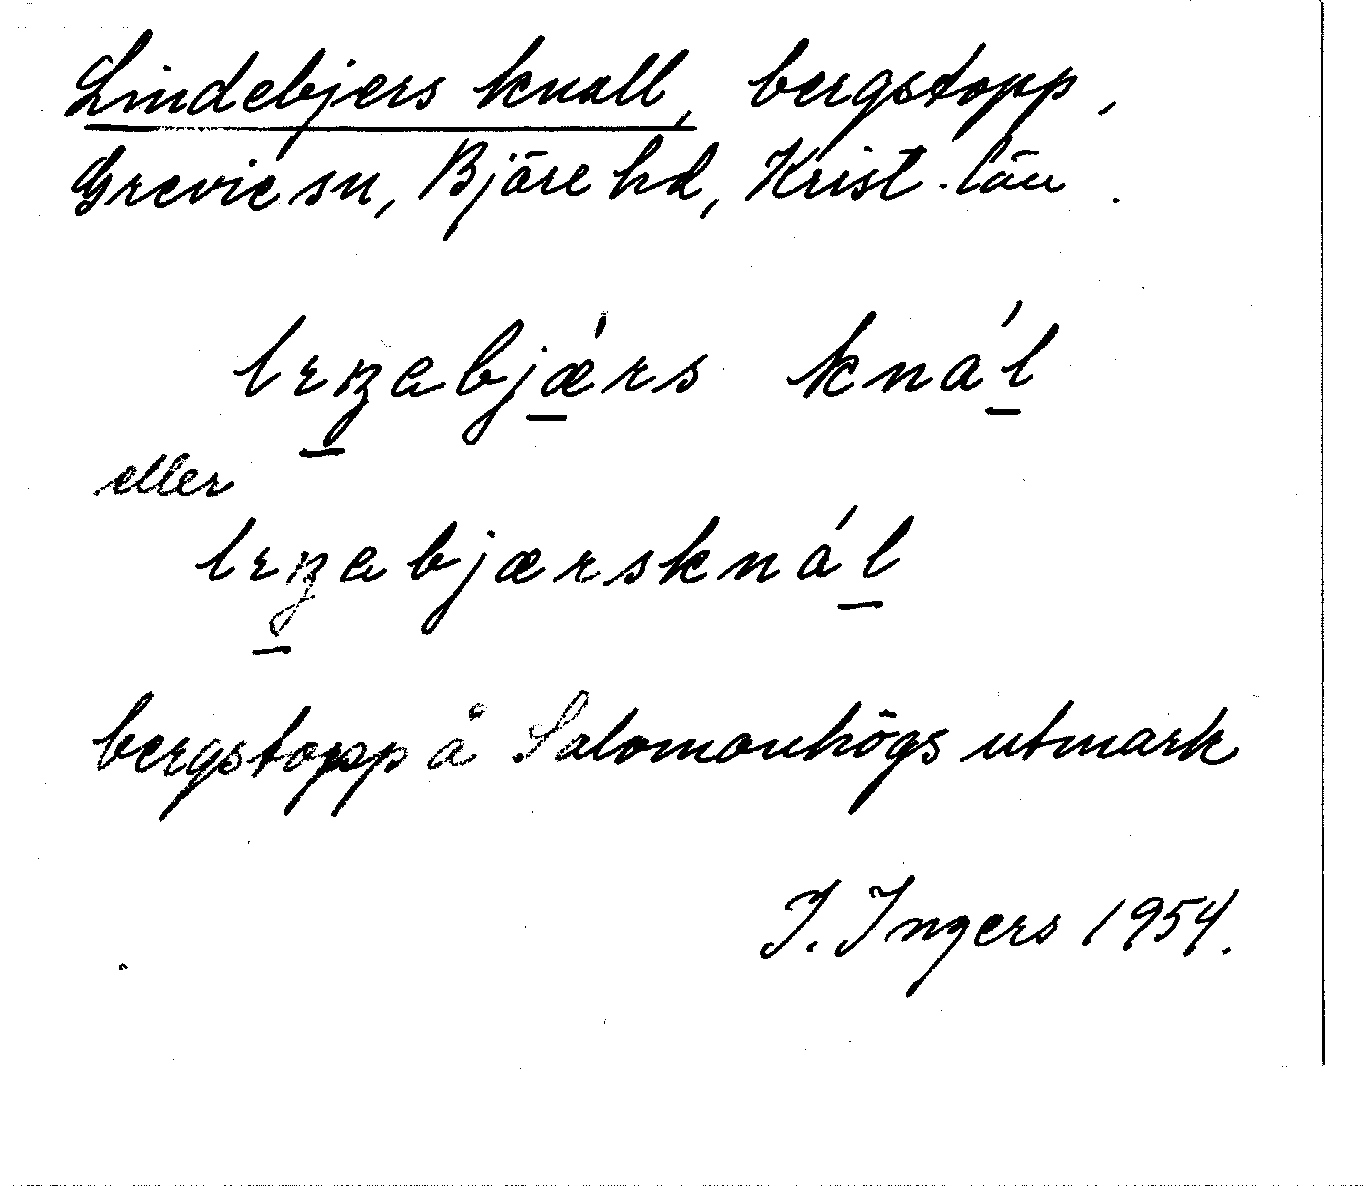 Lindebjers knall, bergstopp,
Grevie sn, Bjäre hd, Krist. län.
eller
bergstopp å Salomonhögs utmark
I. Ingers 1954.